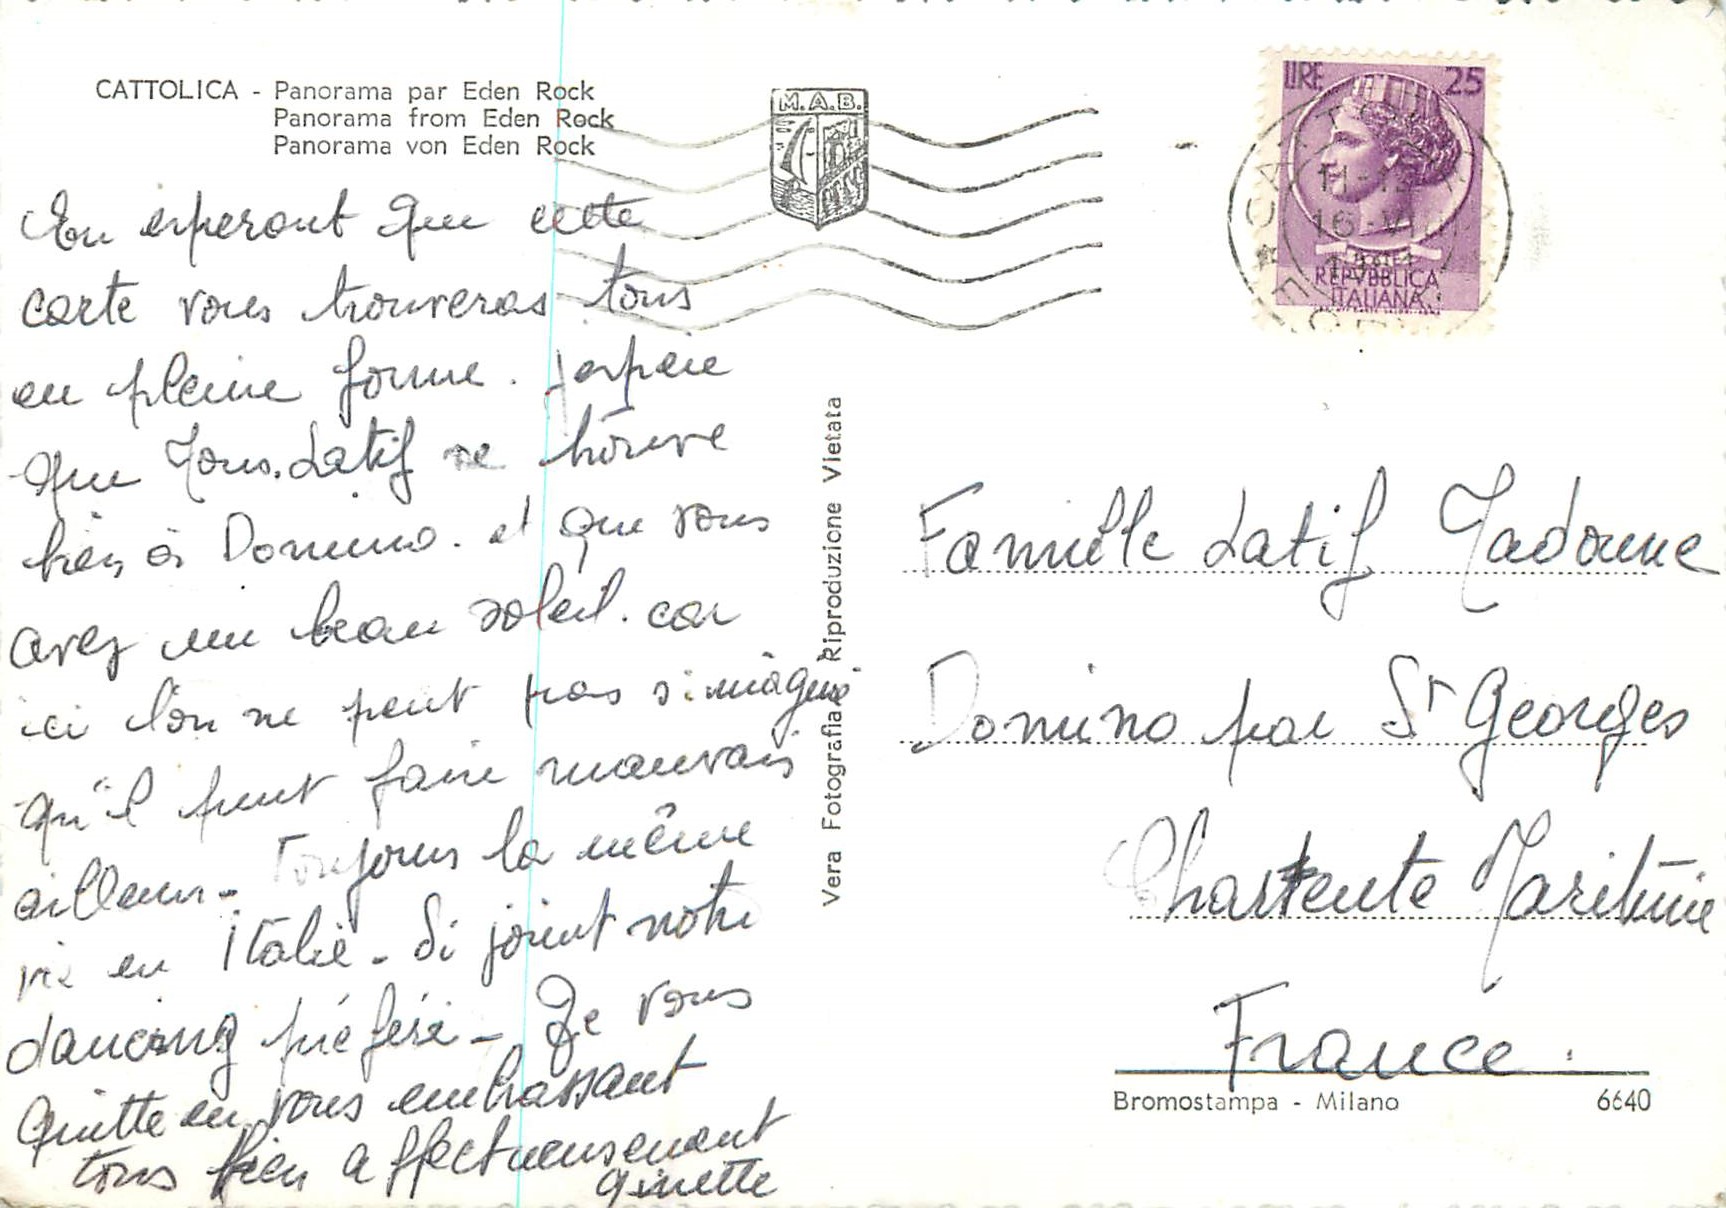 CATTOLICA - Panorama par Eden Rock
Panorama from Eden Rock
Panorama von Eden Rock
En esperant que cette
carte vous trouveras tous
en pleine forme. J'espère
que Mons. Latif se trouve
bien à Domino. et que vous
avez un beau soleil. car
ici l'on ne peut pas s'imaginé
qu'il peut faire mauvais
ailleurs - Toujours la même
vie en Italie - Si joint notre
dancing préféré - Je vous
quitte en vous embrassant
tous bien affectueusement
Ginette
M.A.B.
LIRE 25
REPVBBLICA
ITALIANA
11-15
16-VI
Vera Fotografia Riproduzione Vietata
Famille Latif Madonne
Domino par St Georges
Charente Maritime
France.
Bromostampa - Milano 6640